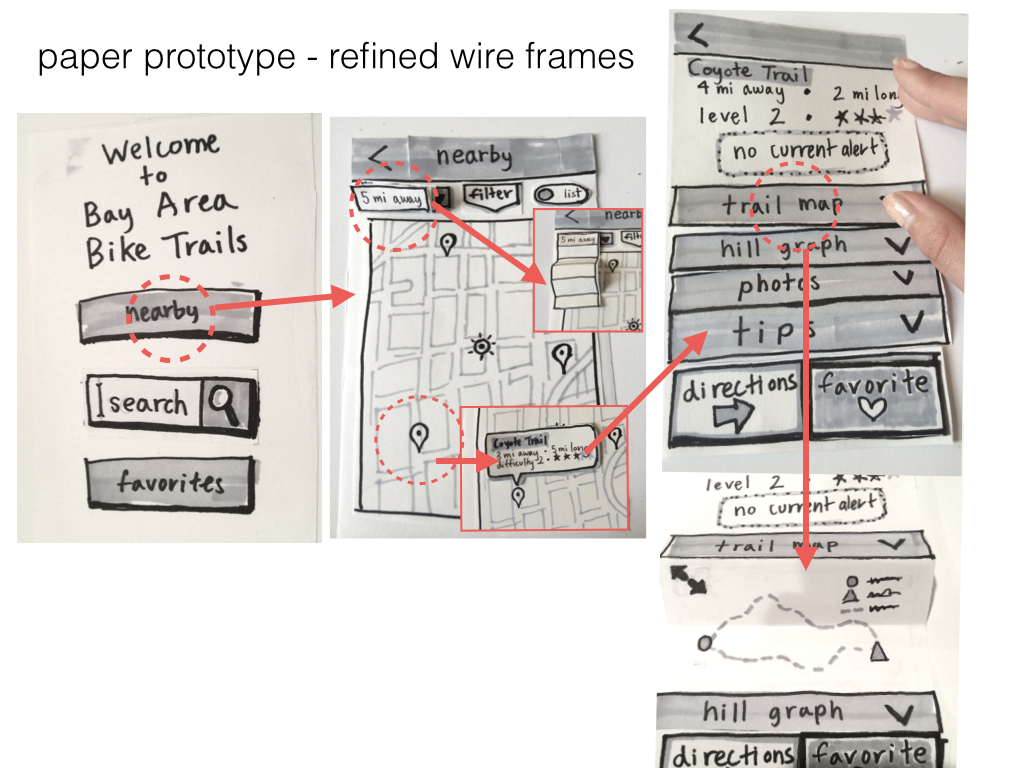 paper prototype - refined wire frames
Welcome
to
Bay Area
Bike Trails
nearby
search
favorites
nearby
5 mi away
filter
list
nearb
5 mi away
Coyote Trail
3 mi away • 5 mi long
difficulty 2 •
Coyote Trail
4 mi away • 2 mi long
level 2 •
no current alert
trail map
hill graph
photos
tips
directions
favorite
level 2
no current alert
trail map
hill graph
directions
favorite